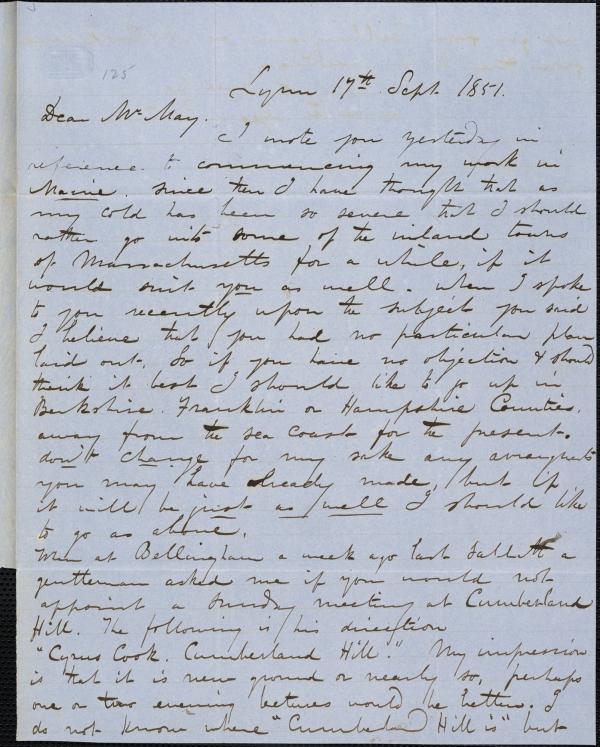 125
Lynn 17th Sept 1851.
Dear Mr May.
I wrote you yesterday in
reference to commencing my work in
Maine. Since then I have thought that as
my cold has been so severe that I should
rather go into some of the inland towns
of Massachusetts for a while, if it
would suit you as well. When I spoke
to you recently upon the subject you said
I believe that you had no particular plan
laid out. So if you have no objection & should
think it best I should like to go up in
Berkshire. Franklin or Hampshire Counties.
away from the sea coast for the present.
don't change for my sake any arrangmts
you may have already made, but if
it will be just as well I should like
to go as above.
When at Bellingham a week ago last Sabbath a
gentleman asked me if you would not
appoint a Sunday meeting at Cumberland
Hill. The following is his direction
"Cyrus Cook. Cumberland Hill." My impression
is that it is new ground or nearly so, perhaps
one or two evening lectures would be better. I
do not know where "Cumberland Hill is" but